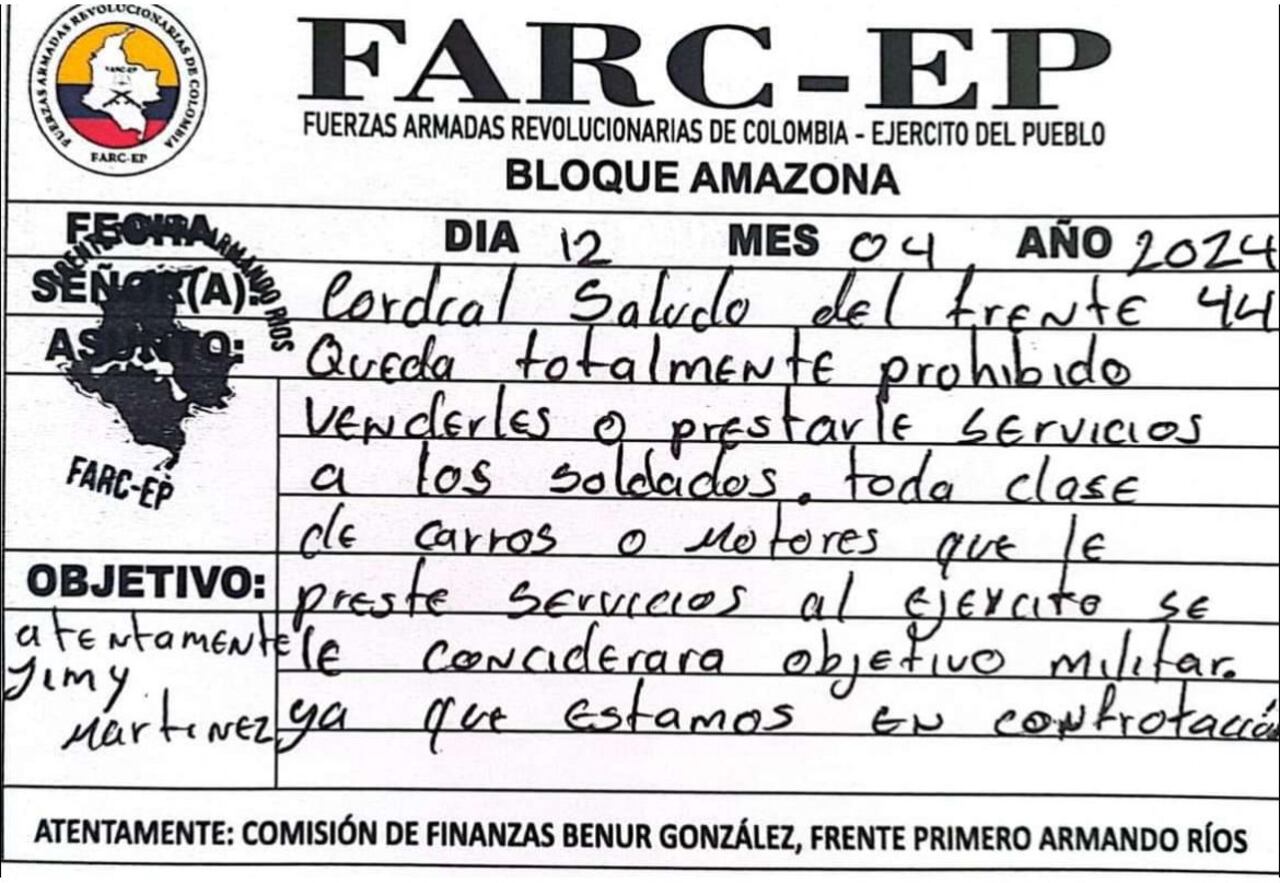 FUERZAS ARMADAS REVOLUCIONARIAS DE COLOMBIA
FARC-EP
FARC-EP
FARC-EP
FUERZAS ARMADAS REVOLUCIONARIAS DE COLOMBIA - EJERCITO DEL PUEBLO
BLOQUE AMAZONA
FECHA DIA 12 MES 04 AÑO 2024
SEÑOR(A): Cordial Saludo del frente 44
ASUNTO: Queda totalmente prohibido
venderles o prestarle servicios
a los soldados. toda clase
de carros o motores que le
preste servicios al ejercito se
le conciderara objetivo militar.
ya que estamos en controtación
FRENTE ARMANDO RIOS
FARC-EP
OBJETIVO:
atentamente
Jimy
Martinez
ATENTAMENTE: COMISIÓN DE FINANZAS BENUR GONZÁLEZ, FRENTE PRIMERO ARMANDO RÍOS